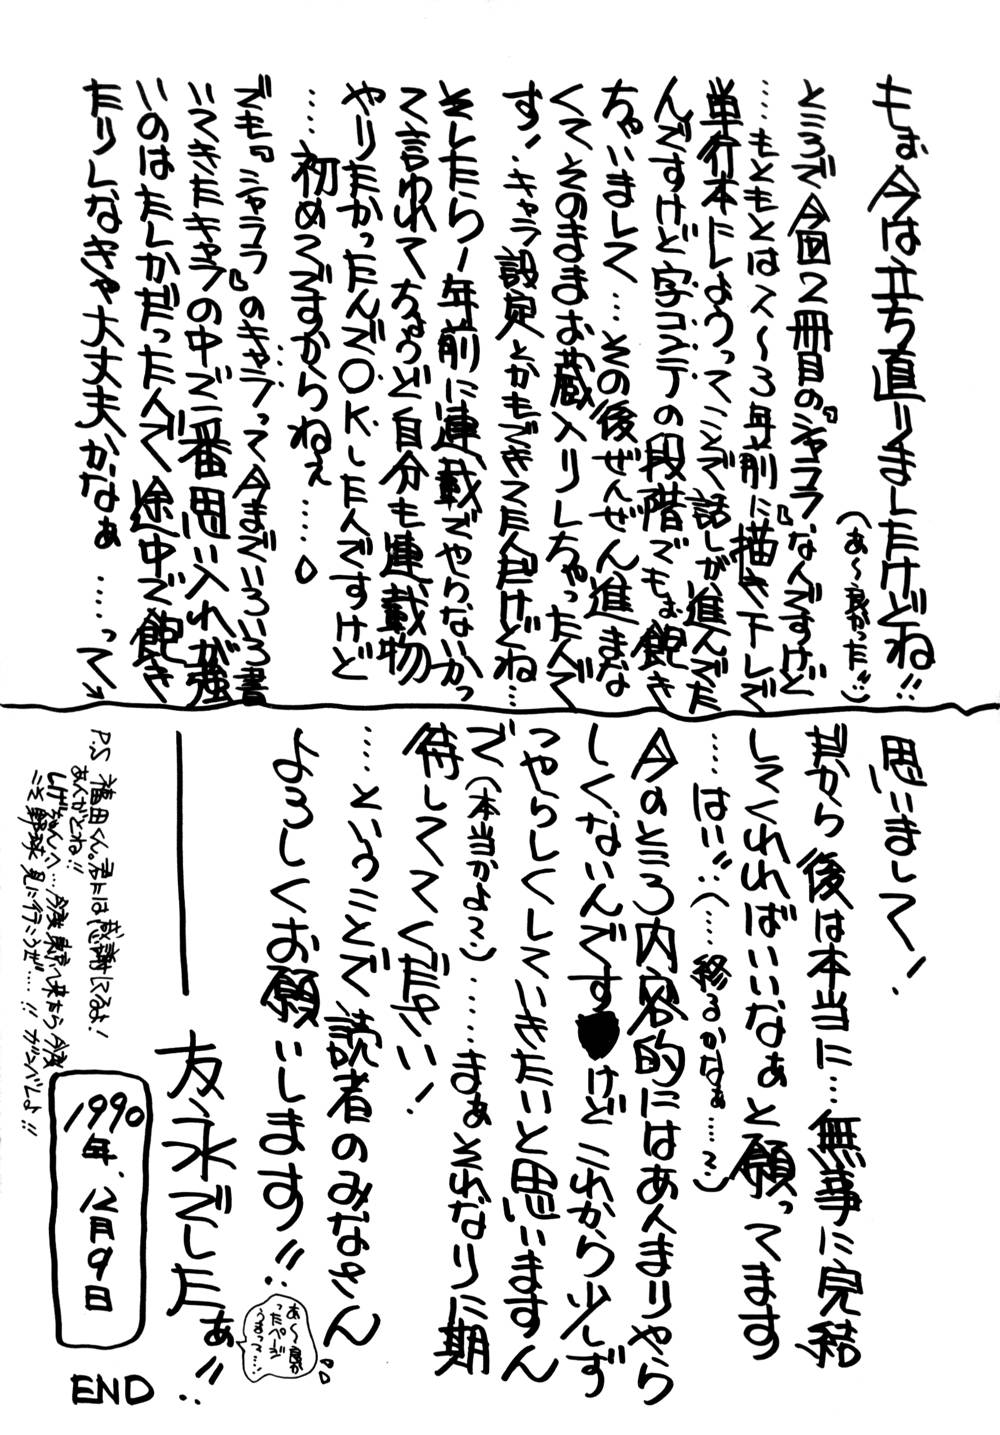 もぉ今は立ち直りましたけどね!!
(あ〜良かった…)
ところで今回2冊目の『シャララ』なんですけど
…もともとは2〜3年前に描き下しで
単行本にしようってことで話しが進んでた
んですけど字コンテの段階でもぉ飽き
ちゃいまして…その後ぜんぜん進まな
くてそのままお蔵入りしちゃったんで
す!キャラ設定とかもできてたんだけどね…
そしたら1年前に連載でやらないかっ
て言われてちょうど自分も連載物
やりたかったんでOKしたんですけど
……初めてですからねぇ……
でも『シャララ』のキャラって今までいろいろ書
いてきたキャラの中で一番思い入れが強
いのはたしかだったんで途中で飽き
たりしなきゃ大丈夫かなぁ……って、
思いまして!
だから後は本当に…無事に完結
してくれればいいなぁと願ってます
……はい…(……終るかなぁ……)
今のところ内容的にはあんまりやら
しくないんです♥けどこれから少しず
つやらしくしていきたいと思いますん
で(本当かよ〜)……まぁそれなりに期
待してて下さい!
……ということで読者のみなさん
よろしくお願いします!!
あ〜良かったページうまって…
友永でしたぁ!!
P.S 福田くん。君には感謝してるよ!
ありがとね!!
しげちゃんへ…今度東京へ来たら今度
こそ野球見に行こうぜ…!!ガンバしよ!!
1990年、12月9日
END